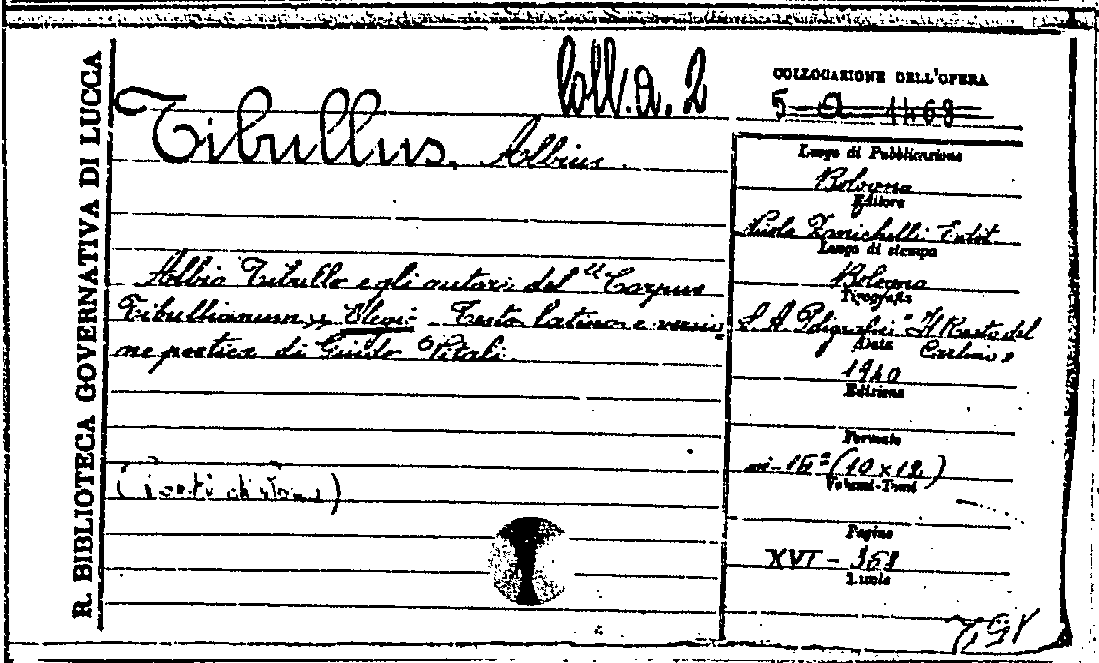 R. BIBLIOTECA GOVERNATIVA DI LUCCA
Coll. a. 2
COLLOCAZIONE DELL'OPERA
5 - a 1468
Tibullus, Albius.
Luogo di Pubblicazione
Bologna
Editore
Nicola Zanichelli Edit.
Luogo di stampa
Bologna
Tipografia
S. A. Poligrafici "Il Resto del
Carlino"
Data
1940
Edizione
Formato
in-16° (10 x 12)
Volumi-Tomi
Pagine
XVI - 368
Albio Tibullo e gli autori del "Corpus
Tibullianum". Elegie - Testo latino e versio
ne poetica di Guido Vitali